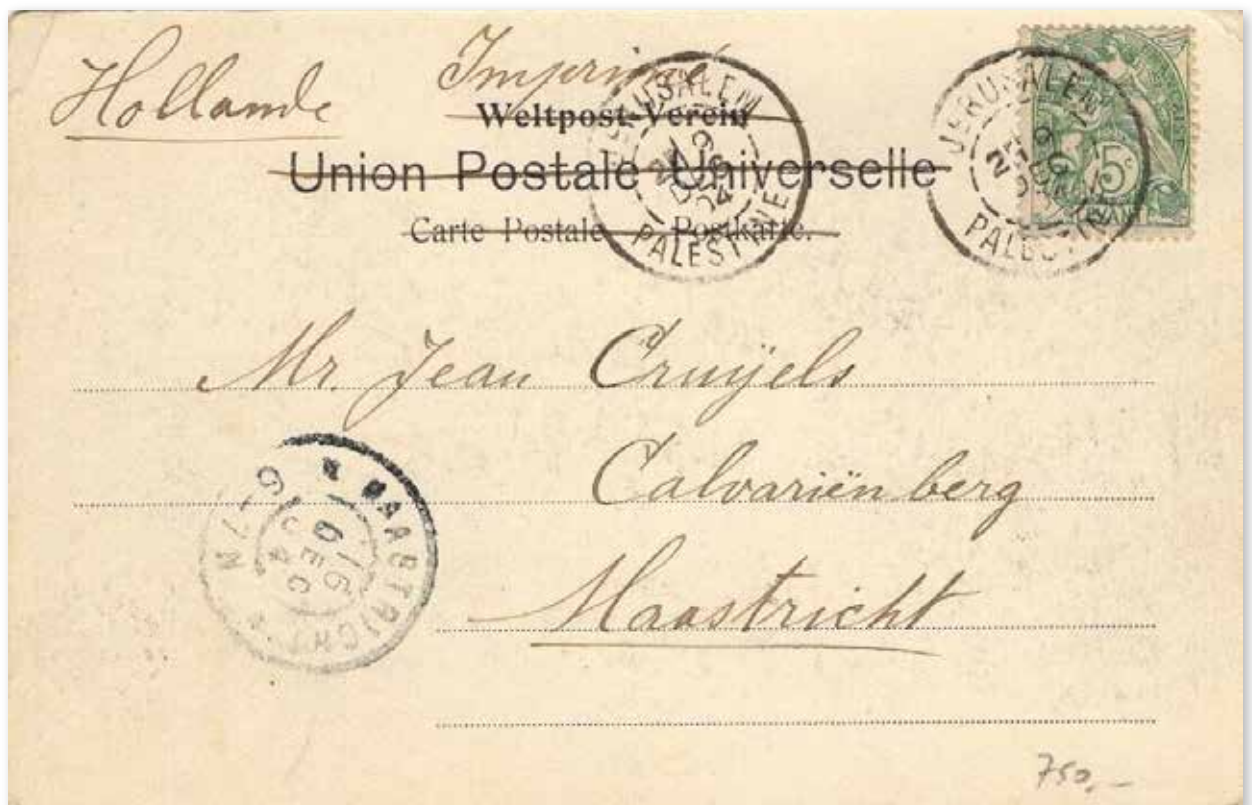 Hollande
Imprimé
Weltpost-Verein
Union Postale Universelle
Carte Postale Postkarte.
JERUSALEM
PALESTINE
JERUSALEM
PALESTINE
5c
Mr. Jean Cruÿels
Calvariënberg
Maastricht
MAASTRICHT
16
DEC
04
750,-